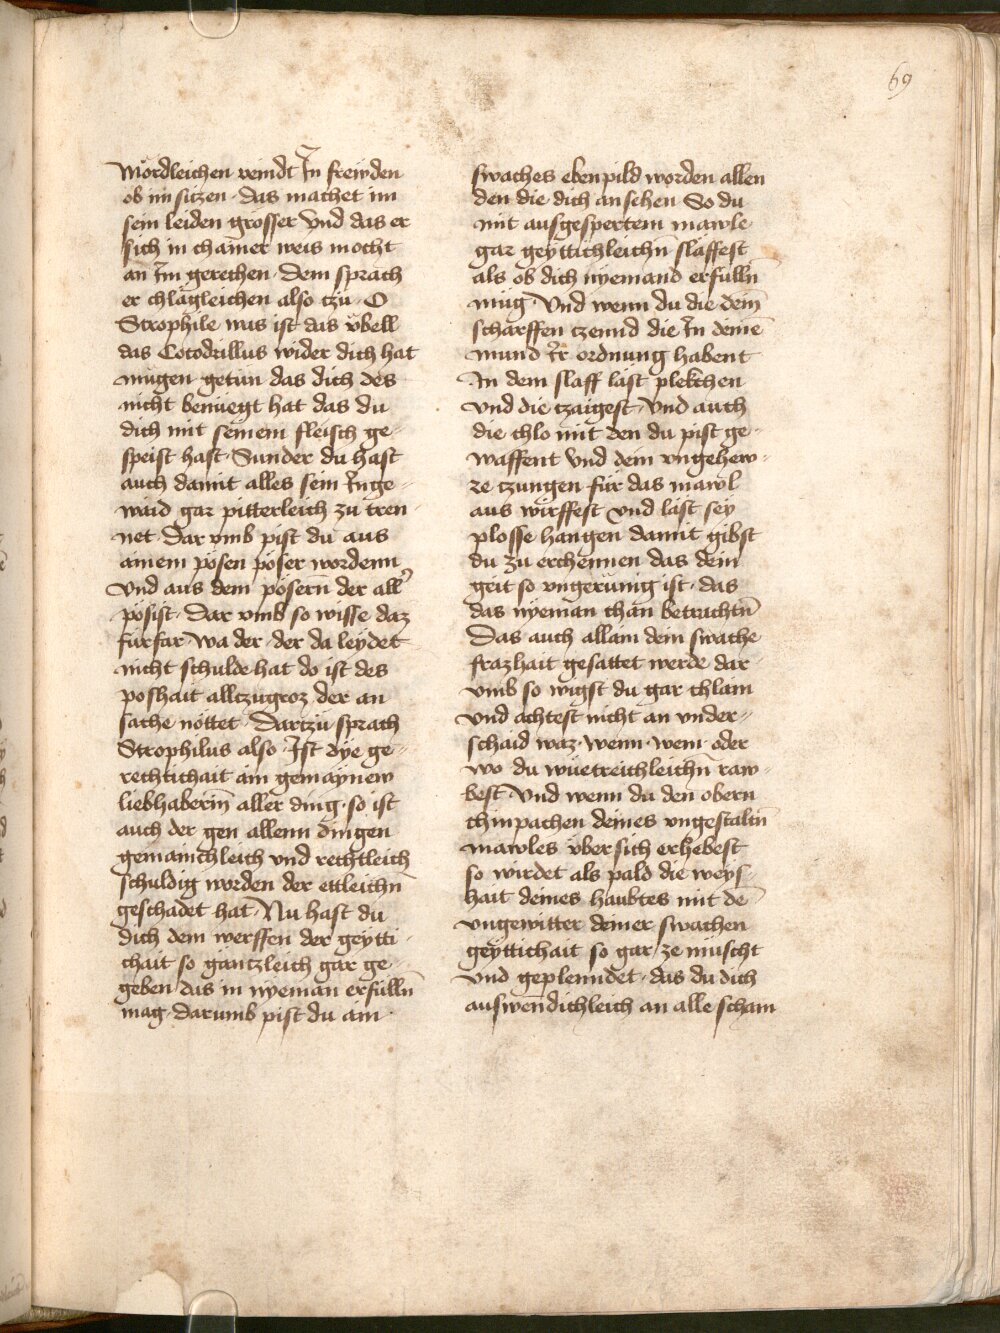 69
Mördleichen veindt Jn frewden
ob im sitzen · das machet im
sein leiden grosser vnd das er
sich in chainer weis mocht
an Jm gerechen · Dem sprach
er chlägleichen also tzu · O
Strophile was ist das vbell
das Cocodrillus wider dich hat
mugen getun das dich des
nicht benüegt hat das du
dich mit seinem fleisch ge-
speist hast · Sunder du hast
auch damit alles sein Jnge-
waid gar pitterleich zu tren-
net Dar vmb pist du aus
ainem pösen pöser wordenn
vnd aus dem pösern̄ der all
pösist · Dar vmb so wisse daz
fürfar wa der · der da leydet
nicht schulde hat do ist des
poshait allczugroz der an
sache nöttet · Dartzu sprach
Strophilus also · Jst dye ge-
rechtichait ain gemaynew
liebhaberin̄ aller ding · so ist
auch der gen allenn dingen
gemainchleich vnd rechtleich
schuldig worden der ettleichn̄
geschadet hat · Nu hast du
dich dem werffen der geytti-
chait so gantzleich gar ge-
geben das in nyeman erfülln̄
mag · darumb pist du ain ·
swaches eben pild worden allen
den die dich an sehen So du
mit ausgespertem mawle
gar geyttichleichn slaffest
als ob dich nyemand erfülln̄
mug · Vnd wenn du die dein̄
scharffen czennd die Jn deinē
mund Jr ordnung habent
Jn dem slaff läst plekchen
vnd die tzaigest · vnd auch
die chlo mit den du pist ge-
waffent vnd dein vngehew-
re czungen für das mawl
aus wirffest vnd läst sey
plosse hangen damit gibst
du zu erchennen das dein
geit so vngerünig ist · das
das nyeman chan betrachtn̄
Das auch allain dein swache
frazhait gesattet werde dar
vmb so wigst du gar chlain
vnd achtest nicht an vnder-
schaid waz · wenn · wem · oder
wo du wüetreichleichn̄ raw-
best Vnd wenn du den obern
chinpachen deines vngestaltn̄
mawles vber sich erhebest
so wirdet als pald die weys-
hait deines haubtes mit dē
vngewitter deiner swachen
geyttichait so gar ze müscht
vnd geplenndet · das du dich
auswendichleich an alle scham